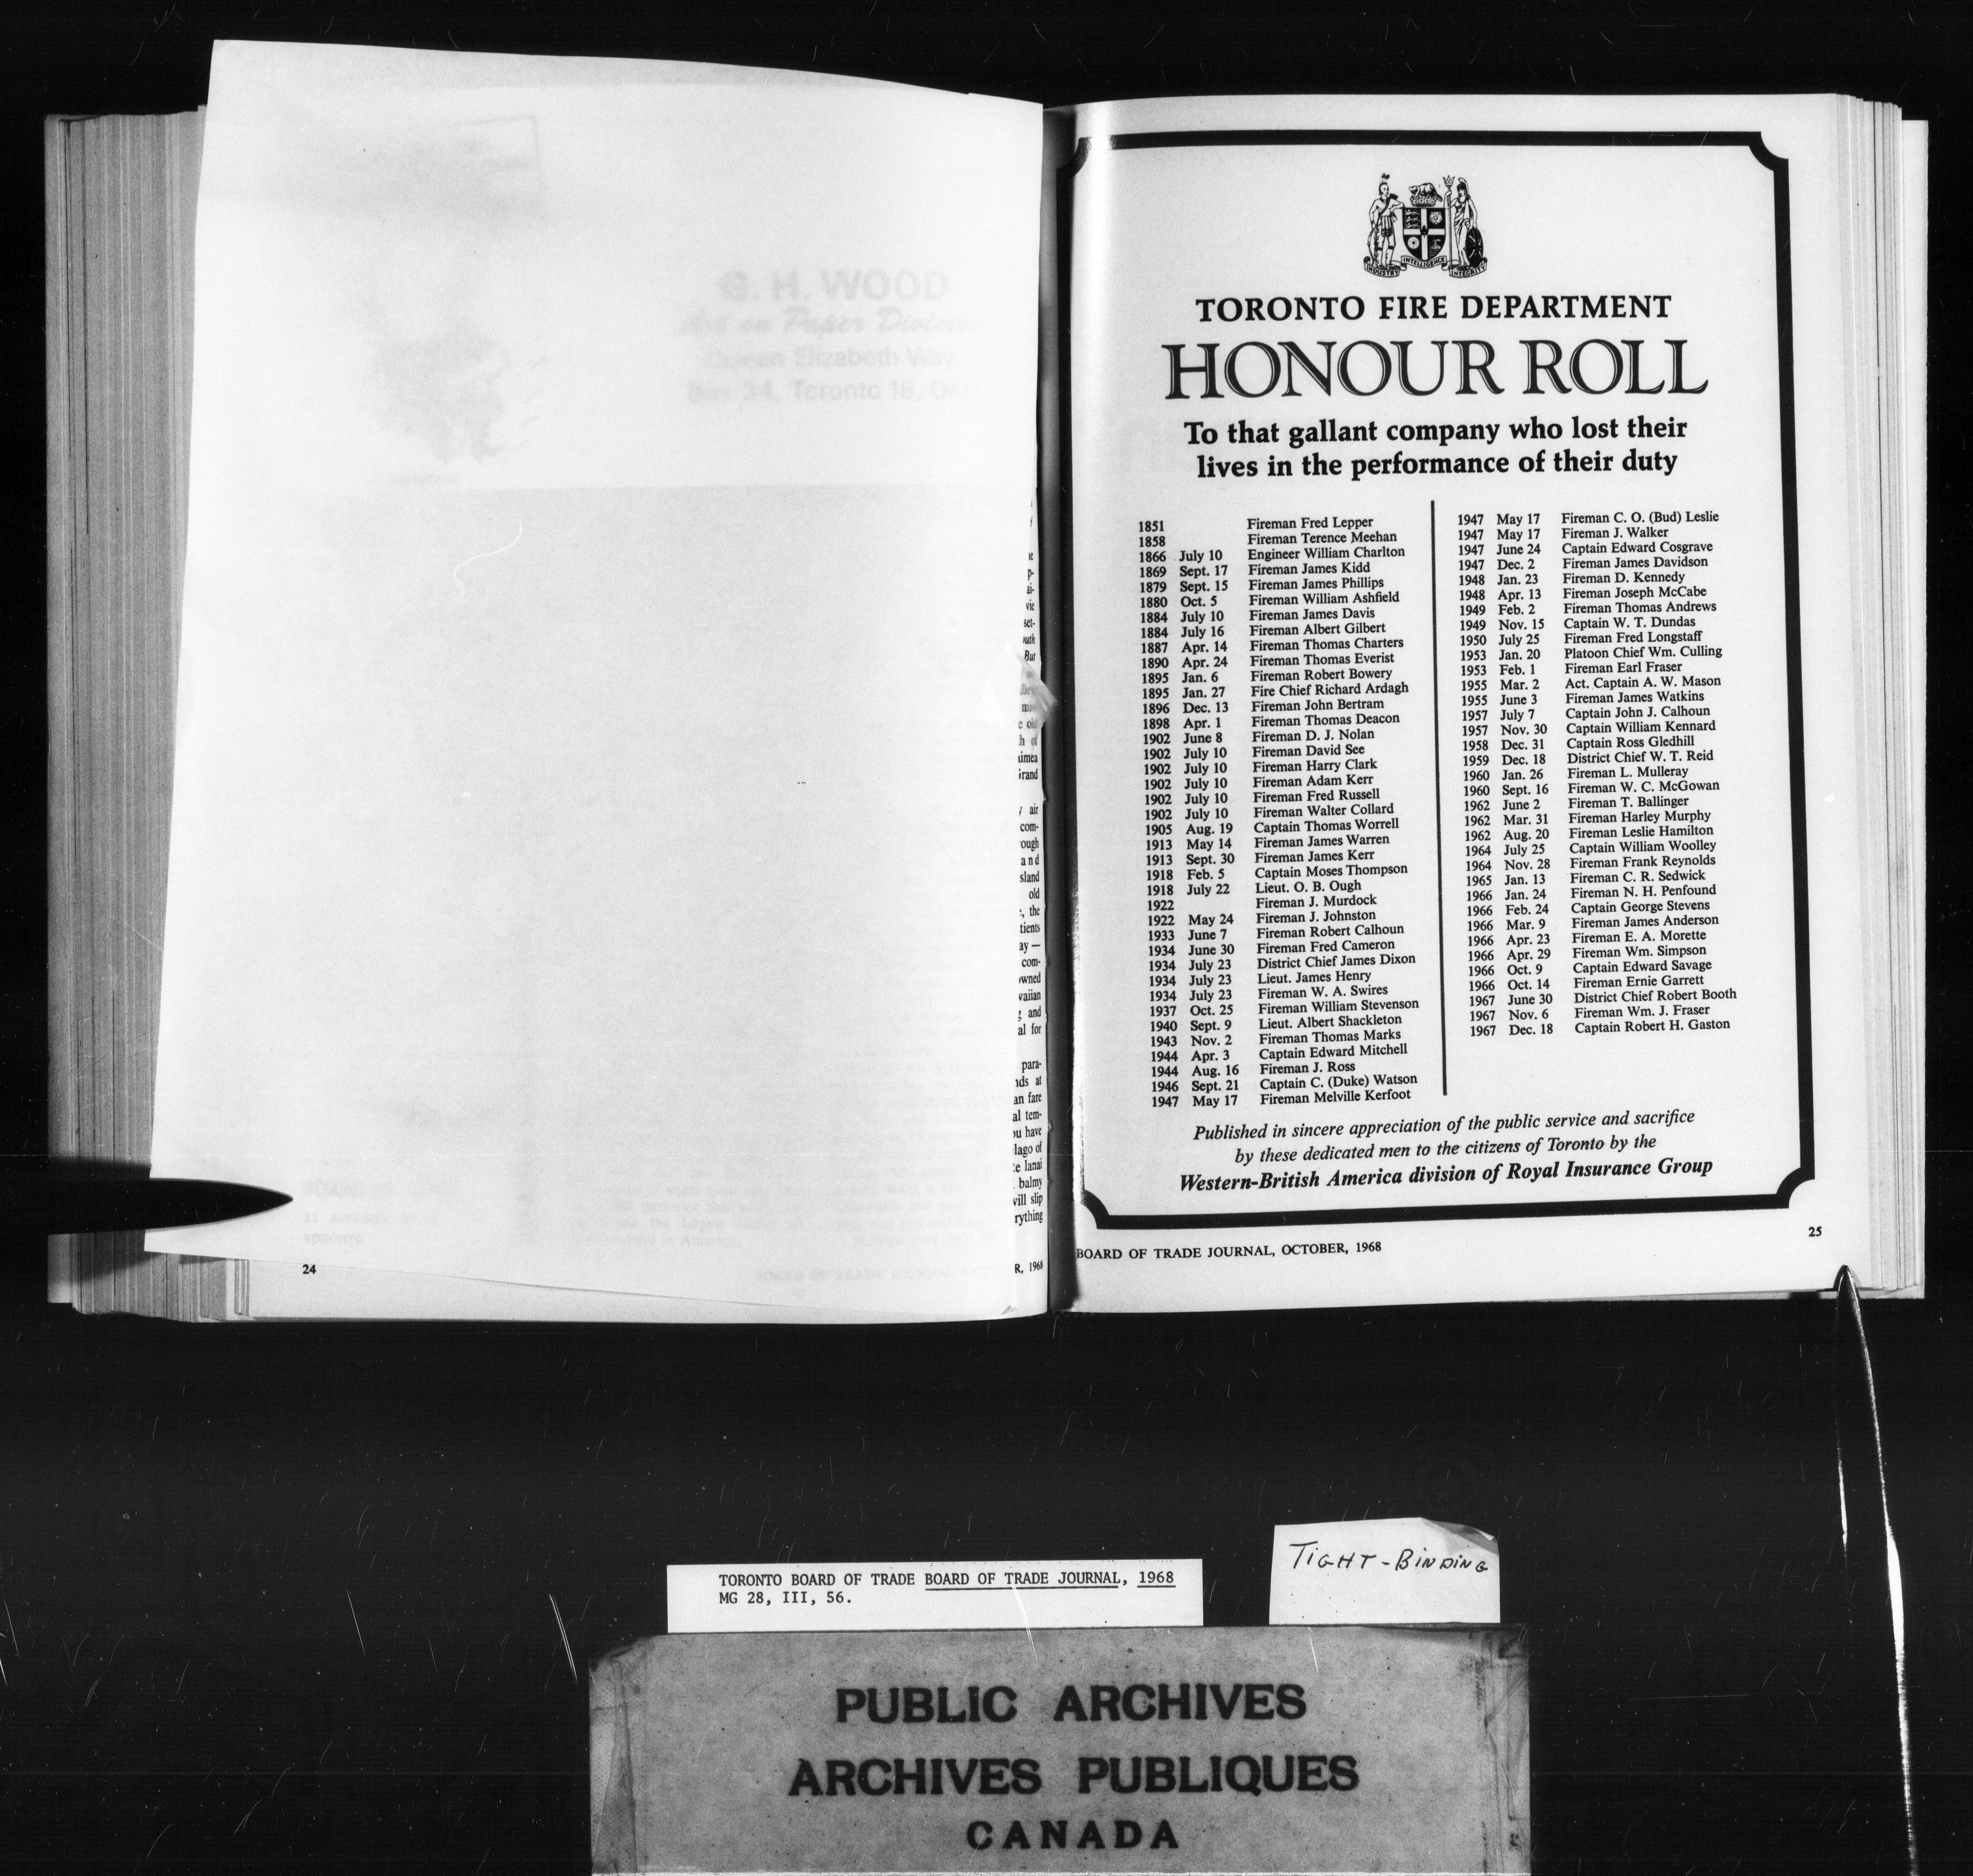 G. H. WOOD
Toronto 18,
24
p-
ai-
vie
set-
But
h of
air
com-
ough
and
sland
old
, the
tients
ay —
com-
owned
vaiian
and
al for
para-
nds at
an fare
al tem-
ou have
lago of
lanai
balmy
will slip
rything
R, 1968
INDUSTRY INTELLIGENCE INTEGRITY
TORONTO FIRE DEPARTMENT
HONOUR ROLL
To that gallant company who lost their
lives in the performance of their duty
1851 Fireman Fred Lepper
1858 Fireman Terence Meehan
1866 July 10 Engineer William Charlton
1869 Sept. 17 Fireman James Kidd
1879 Sept. 15 Fireman James Phillips
1880 Oct. 5 Fireman William Ashfield
1884 July 10 Fireman James Davis
1884 July 16 Fireman Albert Gilbert
1887 Apr. 14 Fireman Thomas Charters
1890 Apr. 24 Fireman Thomas Everist
1895 Jan. 6 Fireman Robert Bowery
1895 Jan. 27 Fire Chief Richard Ardagh
1896 Dec. 13 Fireman John Bertram
1898 Apr. 1 Fireman Thomas Deacon
1902 June 8 Fireman D. J. Nolan
1902 July 10 Fireman David See
1902 July 10 Fireman Harry Clark
1902 July 10 Fireman Adam Kerr
1902 July 10 Fireman Fred Russell
1902 July 10 Fireman Walter Collard
1905 Aug. 19 Captain Thomas Worrell
1913 May 14 Fireman James Warren
1913 Sept. 30 Fireman James Kerr
1918 Feb. 5 Captain Moses Thompson
1918 July 22 Lieut. O. B. Ough
1922 Fireman J. Murdock
1922 May 24 Fireman J. Johnston
1933 June 7 Fireman Robert Calhoun
1934 June 30 Fireman Fred Cameron
1934 July 23 District Chief James Dixon
1934 July 23 Lieut. James Henry
1934 July 23 Fireman W. A. Swires
1937 Oct. 25 Fireman William Stevenson
1940 Sept. 9 Lieut. Albert Shackleton
1943 Nov. 2 Fireman Thomas Marks
1944 Apr. 3 Captain Edward Mitchell
1944 Aug. 16 Fireman J. Ross
1946 Sept. 21 Captain C. (Duke) Watson
1947 May 17 Fireman Melville Kerfoot
1947 May 17 Fireman C. O. (Bud) Leslie
1947 May 17 Fireman J. Walker
1947 June 24 Captain Edward Cosgrave
1947 Dec. 2 Fireman James Davidson
1948 Jan. 23 Fireman D. Kennedy
1948 Apr. 13 Fireman Joseph McCabe
1949 Feb. 2 Fireman Thomas Andrews
1949 Nov. 15 Captain W. T. Dundas
1950 July 25 Fireman Fred Longstaff
1953 Jan. 20 Platoon Chief Wm. Culling
1953 Feb. 1 Fireman Earl Fraser
1955 Mar. 2 Act. Captain A. W. Mason
1955 June 3 Fireman James Watkins
1957 July 7 Captain John J. Calhoun
1957 Nov. 30 Captain William Kennard
1958 Dec. 31 Captain Ross Gledhill
1959 Dec. 18 District Chief W. T. Reid
1960 Jan. 26 Fireman L. Mulleray
1960 Sept. 16 Fireman W. C. McGowan
1962 June 2 Fireman T. Ballinger
1962 Mar. 31 Fireman Harley Murphy
1962 Aug. 20 Fireman Leslie Hamilton
1964 July 25 Captain William Woolley
1964 Nov. 28 Fireman Frank Reynolds
1965 Jan. 13 Fireman C. R. Sedwick
1966 Jan. 24 Fireman N. H. Penfound
1966 Feb. 24 Captain George Stevens
1966 Mar. 9 Fireman James Anderson
1966 Apr. 23 Fireman E. A. Morette
1966 Apr. 29 Fireman Wm. Simpson
1966 Oct. 9 Captain Edward Savage
1966 Oct. 14 Fireman Ernie Garrett
1967 June 30 District Chief Robert Booth
1967 Nov. 6 Fireman Wm. J. Fraser
1967 Dec. 18 Captain Robert H. Gaston
Published in sincere appreciation of the public service and sacrifice
by these dedicated men to the citizens of Toronto by the
Western-British America division of Royal Insurance Group
BOARD OF TRADE JOURNAL, OCTOBER, 1968
25
TORONTO BOARD OF TRADE BOARD OF TRADE JOURNAL, 1968
MG 28, III, 56.
TIGHT-BINDING
PUBLIC ARCHIVES
ARCHIVES PUBLIQUES
CANADA